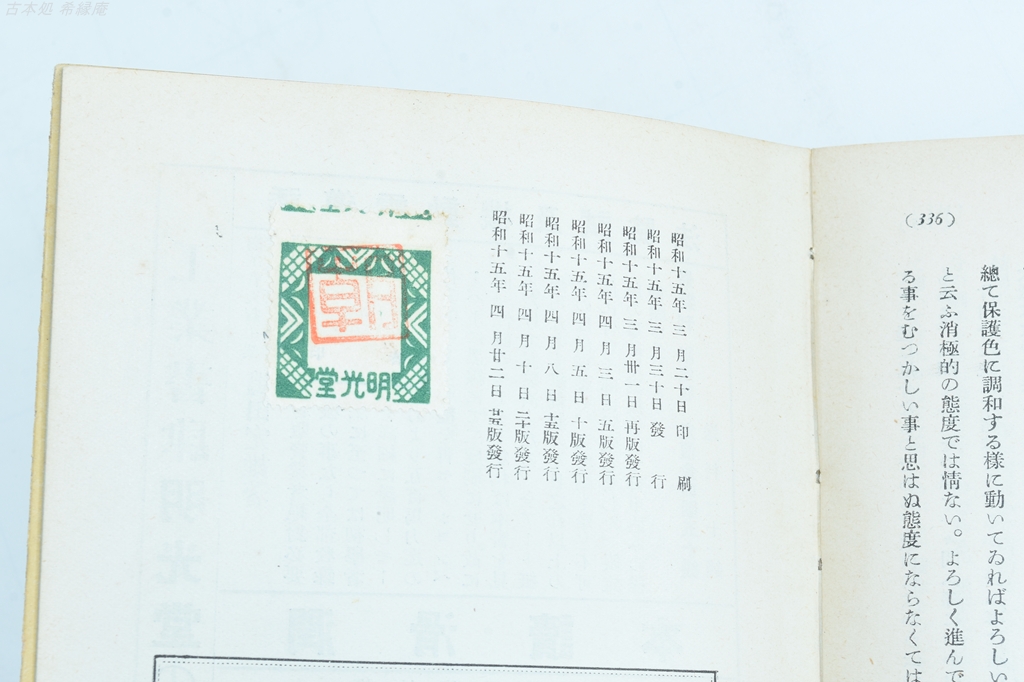 古本処 希縁庵
(336)
總て保護色に調和する樣に動いてゐればよろしい
と云ふ消極的の態度では情ない。よろしく進んで
る事をむつかしい事と思はぬ態度にならなくては
昭和十五年三月二十日印刷
昭和十五年三月三十日發行
昭和十五年三月卅一日再版發行
昭和十五年四月三日五版發行
昭和十五年四月五日十版發行
昭和十五年四月八日十五版發行
昭和十五年四月十日二十版發行
昭和十五年四月廿二日廿五版發行
堂光明